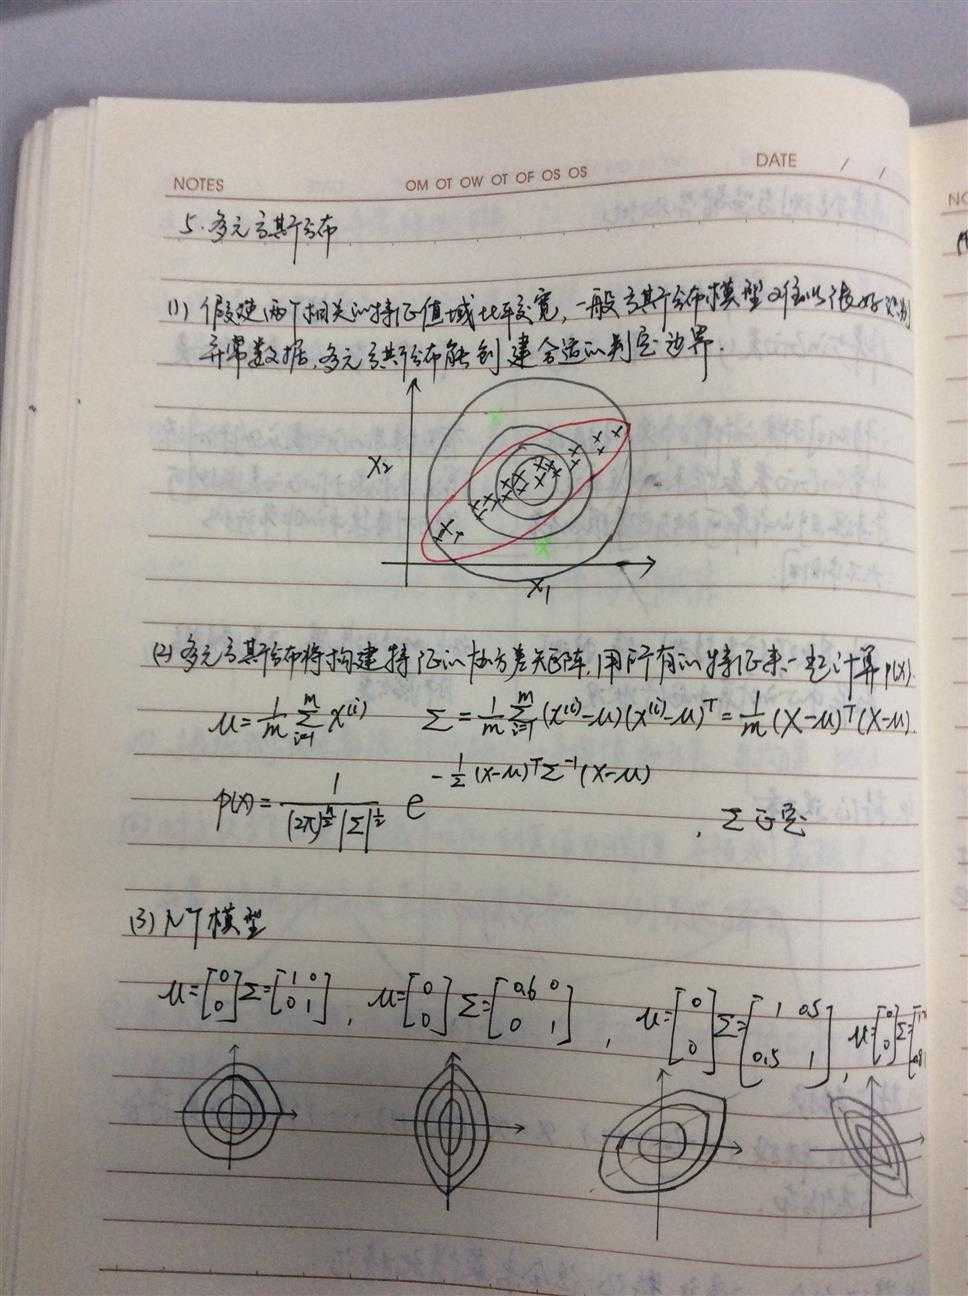 NOTES OM OT OW OT OF OS OS DATE / /
5. 多元高斯分布
(1) 假使两个相关的特征值域比较宽, 一般高斯分布模型
异常数据, 多元高斯分布能创建合适的判定边界.
x₂
x₁
(2) 多元高斯分布将构建特征的协方差矩阵, 用所有的特征来一起计算p(x).
μ = 1/m Σ_{i=1}^{m} x^{(i)} Σ = 1/m Σ_{i=1}^{m} (x^{(i)}-μ)(x^{(i)}-μ)^T = 1/m (X-μ)^T(X-μ).
p(x) = 1/((2π)^{n/2}|Σ|^{1/2}) e^{-1/2 (x-μ)^T Σ^{-1} (x-μ)} , Σ 正定
(3) 模型
μ=[0 0] Σ=[1 0 0 1], μ=[0 0] Σ=[0.6 0 0 1], μ=[0 0] Σ=[1 0.5 0.5 1], μ=[0 0] Σ=